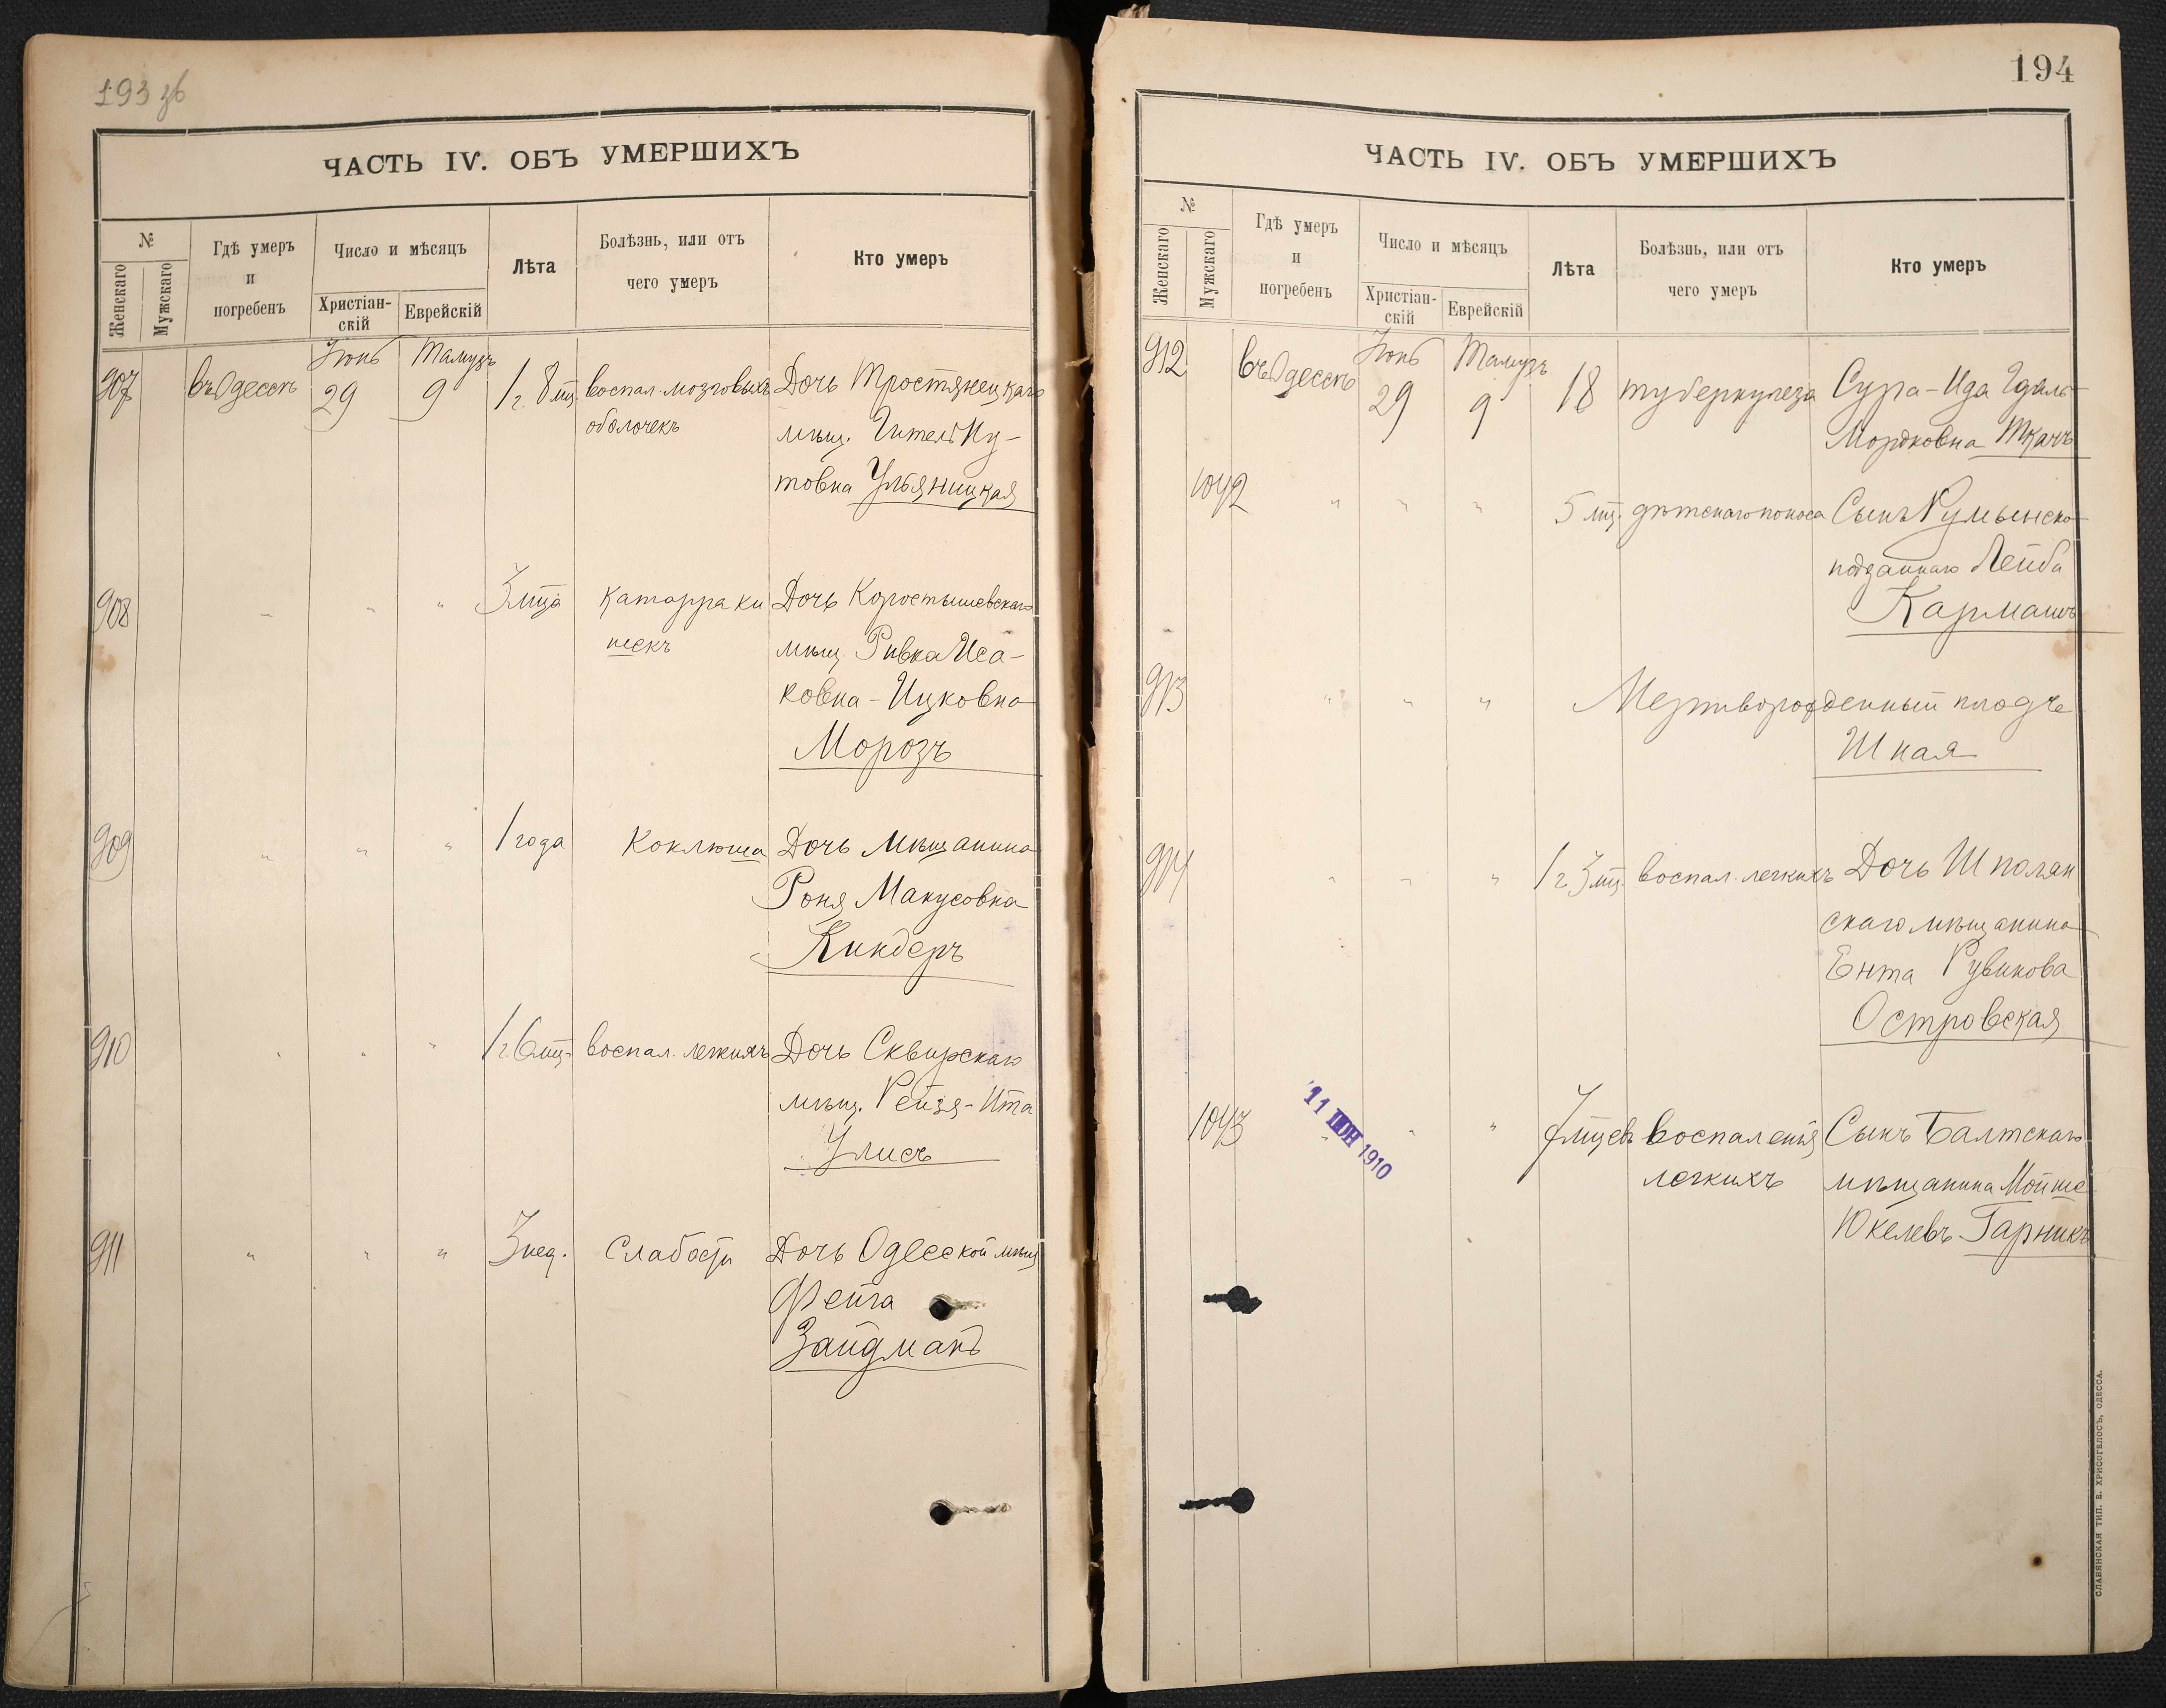 193 зв
ЧАСТЬ IV. ОБЪ УМЕРШИХЪ
№
Женскаго
Мужскаго
Гдѣ умеръ
и
погребенъ
Число и мѣсяцъ
Христіан-
скій
Еврейскій
Лѣта
Болѣзнь, или отъ
чего умеръ
Кто умеръ
Іюнь Тамузъ
907 въ Одессѣ 29 9 1 г. 8 мц. воспал. мозговыхъ Дочь Тростянецкаго
оболочекъ мѣщ. Гитель Ну-
товна Ульяницкая
908 " " " 3 мца катарра ки Дочь Коростышевскаго
шекъ мѣщ. Ривка Иса-
ковна - Ицковна
Морозъ
909 " " " 1 года Коклюша Дочь Мѣщанина
Роня Манусовна
Киндеръ
910 " " " 1 г. 6 мц. воспал. легкихъ Дочь Сквирскаго
мѣщ. Рейзя - Ита
Улисъ
911 " " " 3 нед. Слабости Дочь Одесской мѣщ
Фейга
Зайдманъ
194
ЧАСТЬ IV. ОБЪ УМЕРШИХЪ
№
Женскаго
Мужскаго
Гдѣ умеръ
и
погребенъ
Число и мѣсяцъ
Христіан-
скій
Еврейскій
Лѣта
Болѣзнь, или отъ
чего умеръ
Кто умеръ
Іюнь Тамузъ
912 въ Одессѣ 29 9 18 туберкулеза Сура - Ида Гдаль-
Мордковна Ткачъ
1042 " " " 5 мц. дѣтскаго поноса Сынъ Румынско
подданнаго Лейба
913 " " " Мертворожденный плодъ
Шная
914 " " " 1 г. 3 мц. воспал. легкихъ Дочь Шполян
скаго мѣщанина
Ента Рувинова
Островская
11 ІЮН 1910
1043 " " " 7 мцевъ воспаленія Сынъ Балтскаго
легкихъ мѣщанина Мойше
Юкелевъ Гарникъ
СЛАВЯНСКАЯ ТИП. Е. ХРИСОГЕЛОСЪ, ОДЕССА.